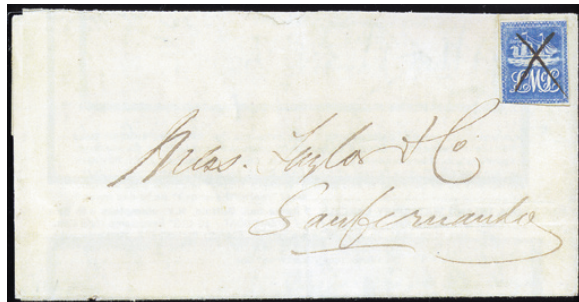 LMcL
Mess. Taylor & Co
San Fernando